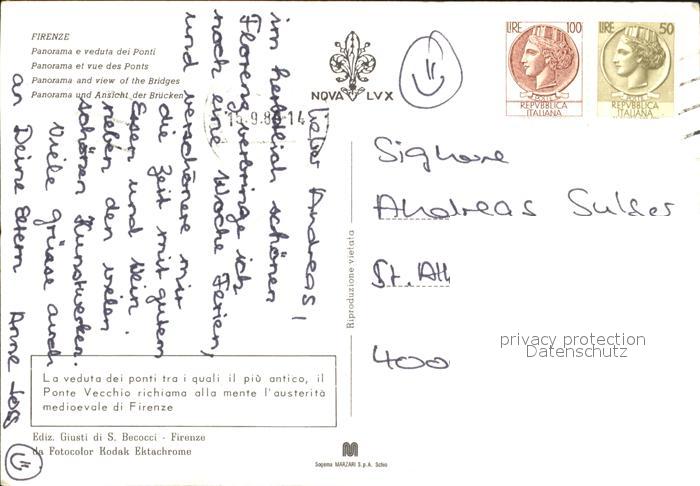 FIRENZE
Panorama e veduta dei Ponti
Panorama et vue des Ponts
Panorama and view of the Bridges
Panorama und Ansicht der Brücken
NOVA LVX
LIRE 100
POSTE
REPVBBLICA
ITALIANA
LIRE 50
POSTE
REPVBBLICA
ITALIANA
15.9.80-14
Lieber Andreas!
im herbstlich schönen
Florenz verbringe ich
noch eine Woche Ferien,
und verschönere mir
die Zeit mit gutem
Essen und Wein.
neben den vielen
schönen Kunstwerken.
Viele grüsse auch
an Deine Eltern Anne
Riproduzione vietata
Signore
Andreas Sulser
400
privacy protection
Datenschutz
La veduta dei ponti tra i quali il più antico, il
Ponte Vecchio richiama alla mente l'austerità
medioevale di Firenze
Ediz. Giusti di S. Becocci - Firenze
da Fotocolor Kodak Ektachrome
Sogema MARZARI S.p.A. Schio